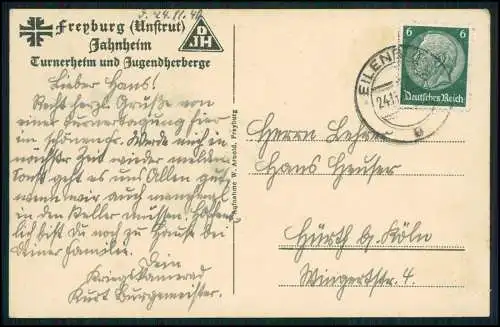 3. 24.11.40
Freyburg (Unstrut)
DJH
Jahnheim
Turnerheim und Jugendherberge
Lieber Hans!
Recht herzl. Grüße von
einer Turnertagung hier
im schönen Fr. Werde mich in
nächster Zeit wieder melden
Sonst geht es uns Allen gut,
wenn wir auch manchmal
in den Keller müssen. Hoffent-
lich bist Du noch zu Hause bei
Deiner Familie.
Dein
Kriegskamerad
Kurt Burgemeister.
Aufnahme W. Arnold, Freyburg
6 6
Deutsches Reich
EILENB
24.11
Herrn Lehrer
Hans Heuser
Hürth b. Köln
Wingertstr. 4.